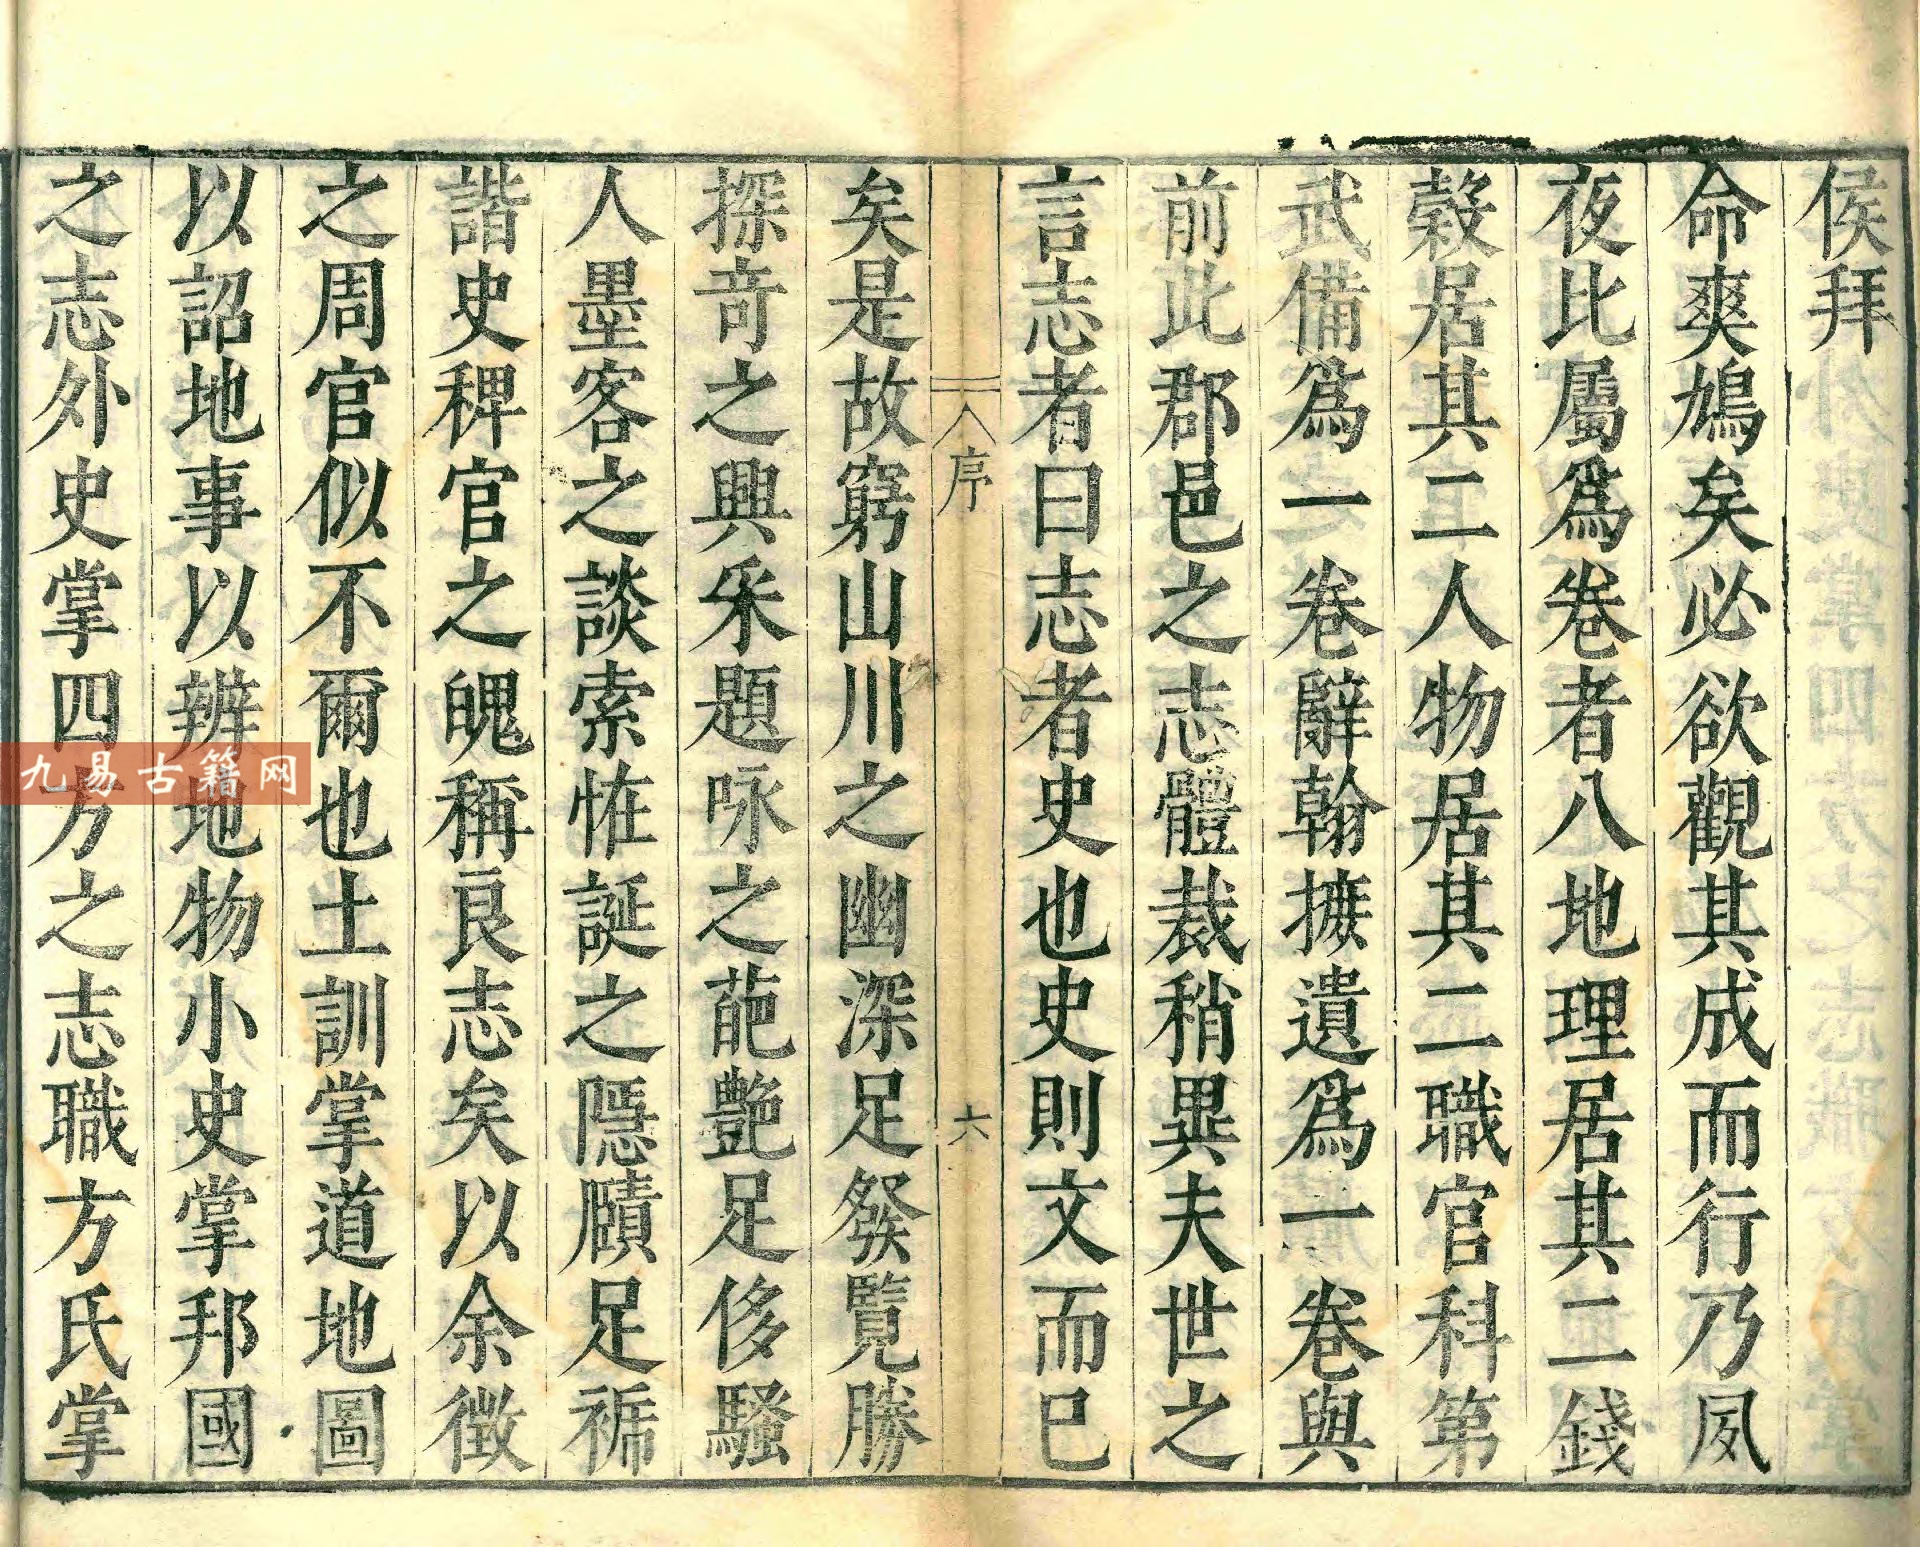 侯拜
命爽鳩矣必欲觀其成而行乃夙
夜比屬爲卷者八地理居其二錢
穀居其二人物居其二職官科第
武備爲一卷辭翰摭遺爲一卷與
前此郡邑之志體裁稍異夫世之
言志者曰志者史也史則文而已
序
六
矣是故窮山川之幽深足發覽勝
探奇之興采題咏之葩艷足侈騷
人墨客之談索恠誕之隱賾足裨
諧史稗官之餽稱良志矣以余徵
之周官似不爾也土訓掌道地圖
以詔地事以辨地物小史掌邦國
之志外史掌四方之志職方氏掌
九易古籍网